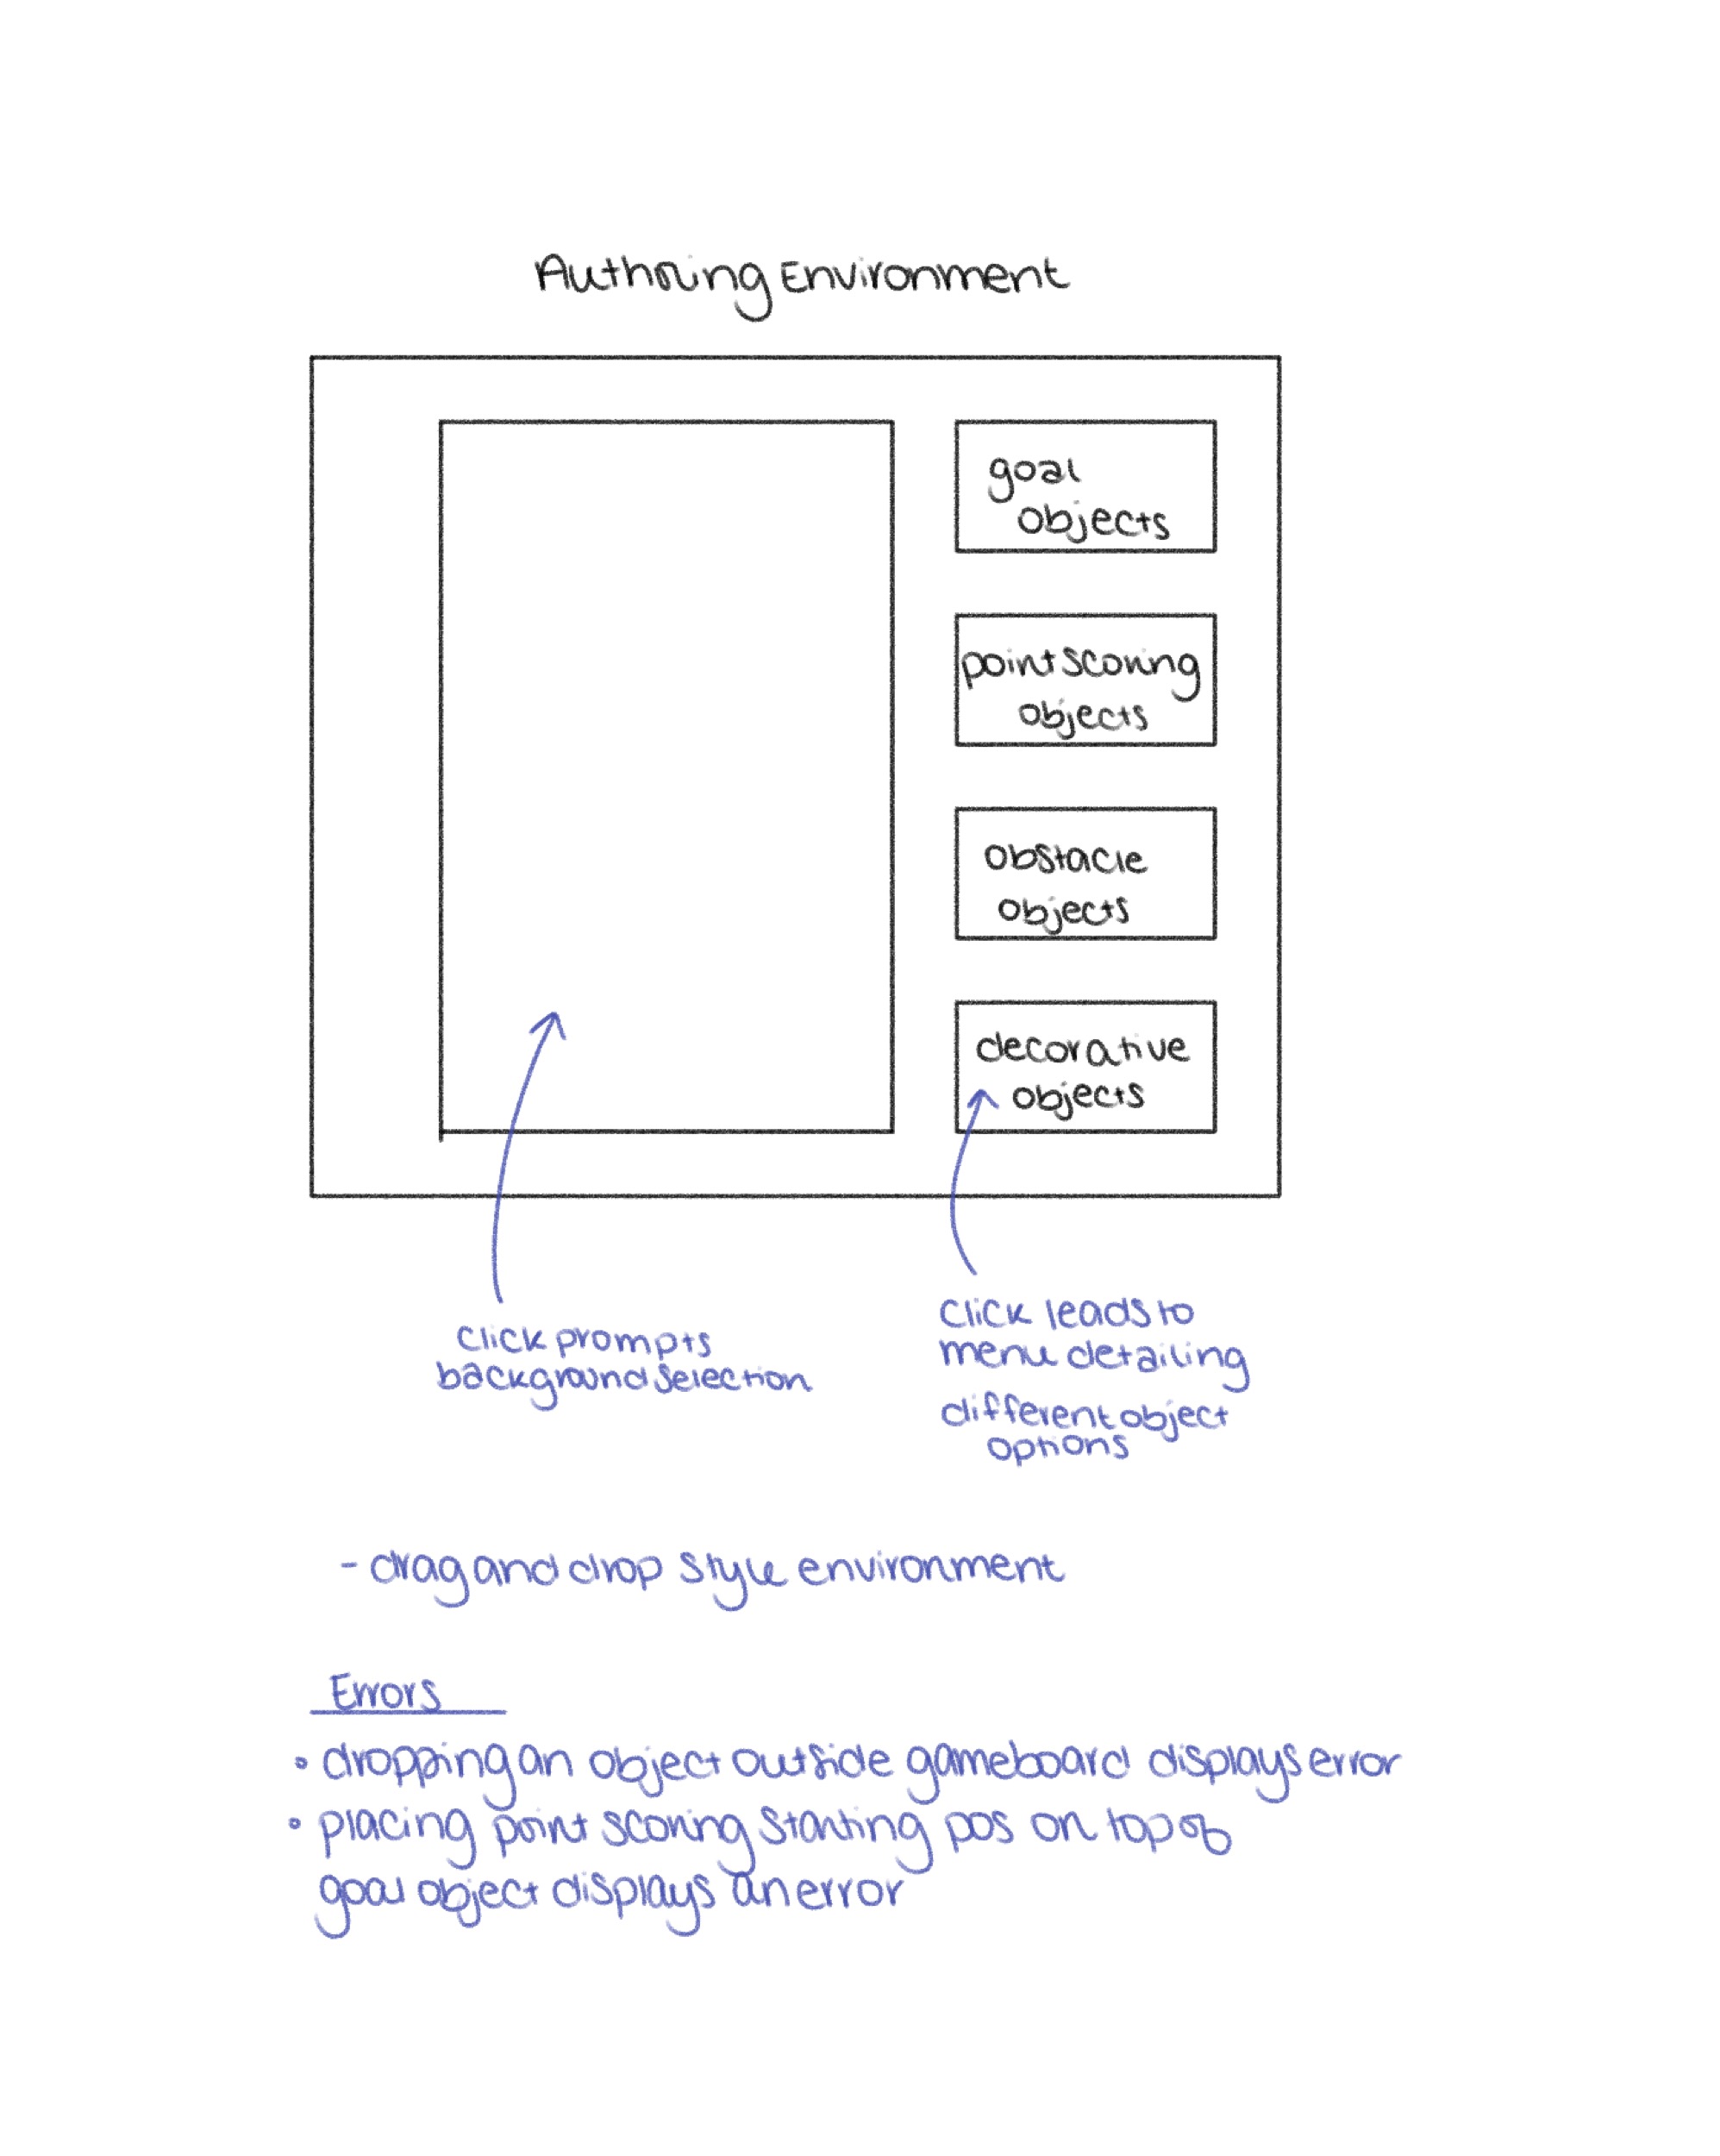 Authoring Environment
goal
objects
point scoring
objects
obstacle
objects
decorative
objects
click prompts
background selection
click leads to
menu detailing
different object
options
- drag and drop style environment
Errors
• dropping an object outside gameboard displays error
• placing point scoring starting pos on top of
goal object displays an error